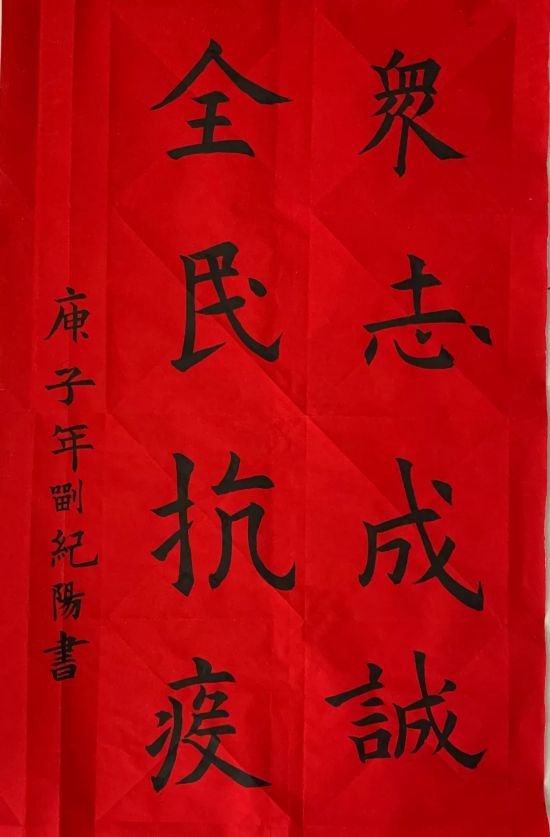 衆志成誠
全民抗疫
庚子年劉紀陽書